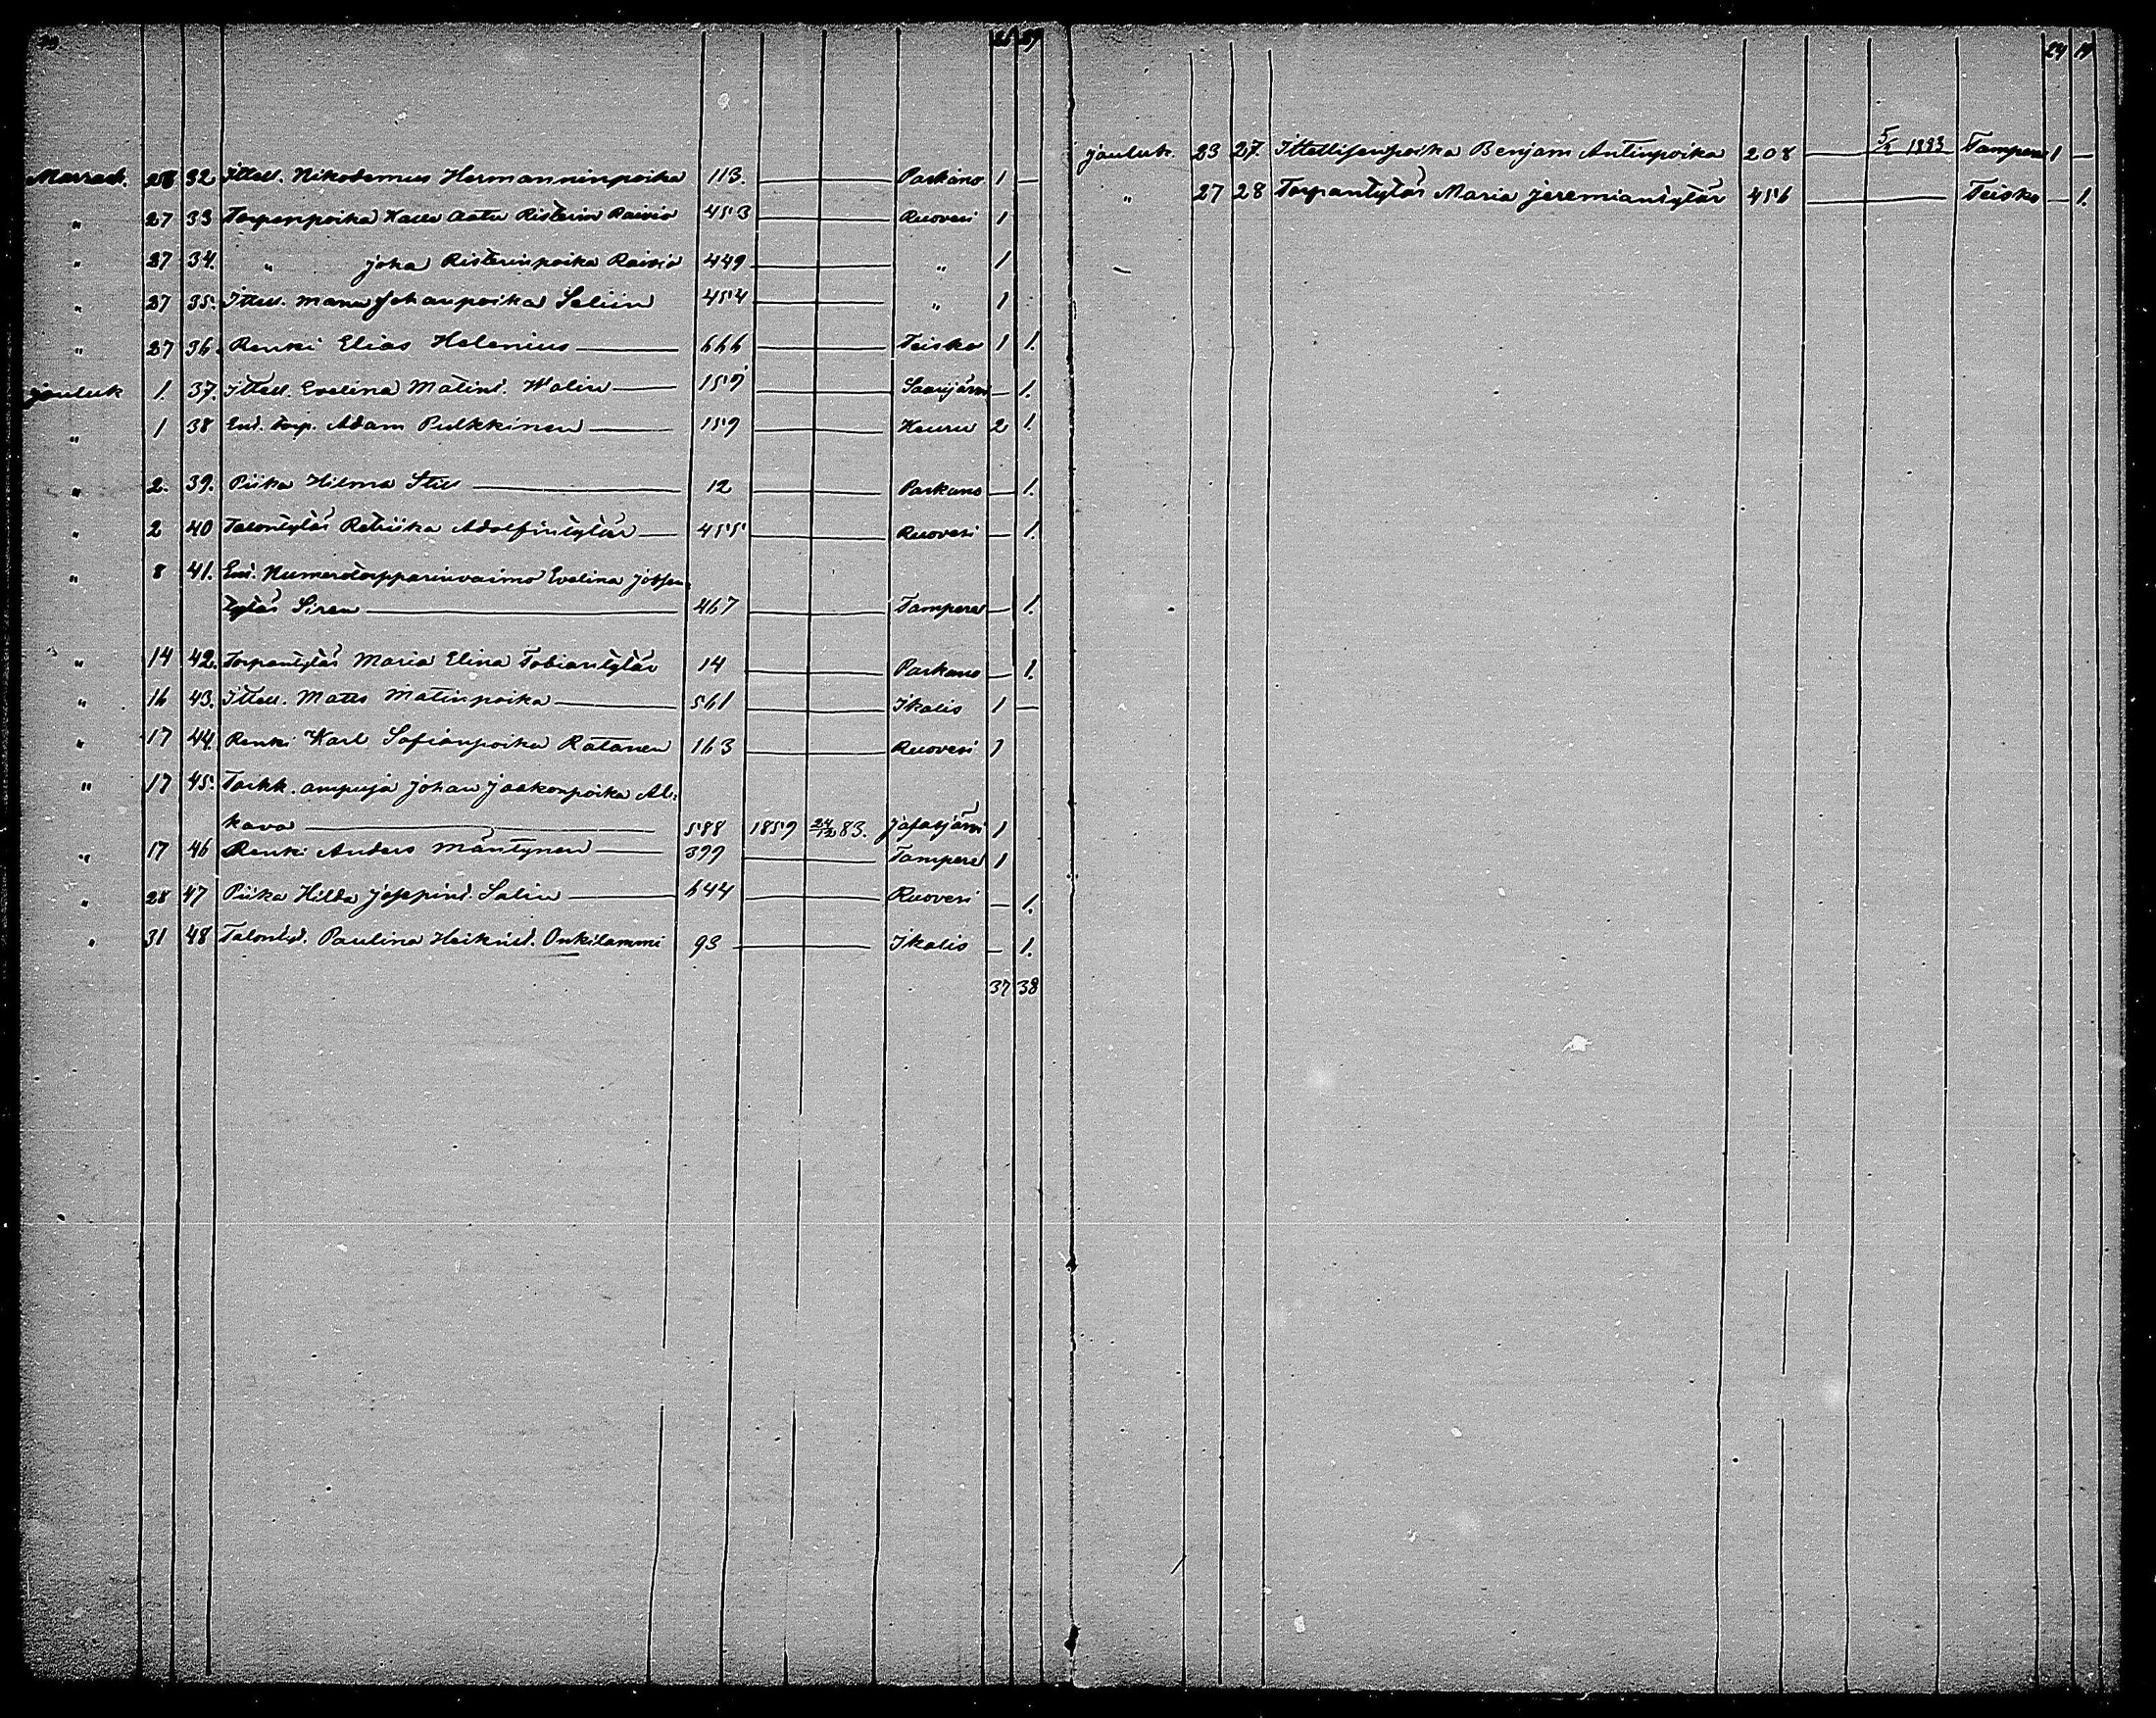 Marrask. 28 32 Ittell. Nikodemus Hermanninpoika 113. Parkano 1 —
" 27 33 Torpanpoika Kalle Aatu Risterin Raivio 453 Ruovesi 1
" 27 34. " Joha Risterinpoika Raivio 449 " 1
" 27 35. Ittell. Manu Johanpoika Seliin 454 " 1
" 27 36. Renki Elias Helenius 666 Teisko 1 1.
Jouluk 1. 37. Ittell. Evelina Matint. Walin 159 Saarijärvi — 1.
" 1 38 Ent. torp. Adam Pulkkinen 159 Keuru 2 1.
" 2. 39. Piika Hilma Still 12 Parkano — 1.
" 2 40 Talontytär Retriika Adolfintytär 455 Ruovesi — 1.
" 8 41. Ent. Numerotorpparinvaimo Evelina Josefin
tytär Siren 467 Tampere — 1.
" 14 42. Torpantytär Maria Elina Tobiantytär 14 Parkano — 1.
" 16 43. Ittell. Matts Matinpoika 561 Ikalis 1 —
" 17 44. Renki Karl Sofianpoika Ratanen 163 Ruovesi 1
" 17 45. Tarkk. ampuja Johan Jaakonpoika Al:
kava 588 1859 24/12 83. Jalasjärvi 1
" 17 46 Renki Anders Mäntynen 399 Tampere 1
" 28 47 Piika Hilda Josepint. Salin 644 Ruovesi — 1.
" 31 48 Talontyt. Paulina Heikint. Onkilammi 93 Ikalis — 1.
37 38
24 19
Jouluk. 23 27. Ittellisenpoika Benjam Antinpoika 208 1883 Tampere 1 —
" 27 28 Torpantytär Maria Jeremiantytär 456 Teisko — 1.